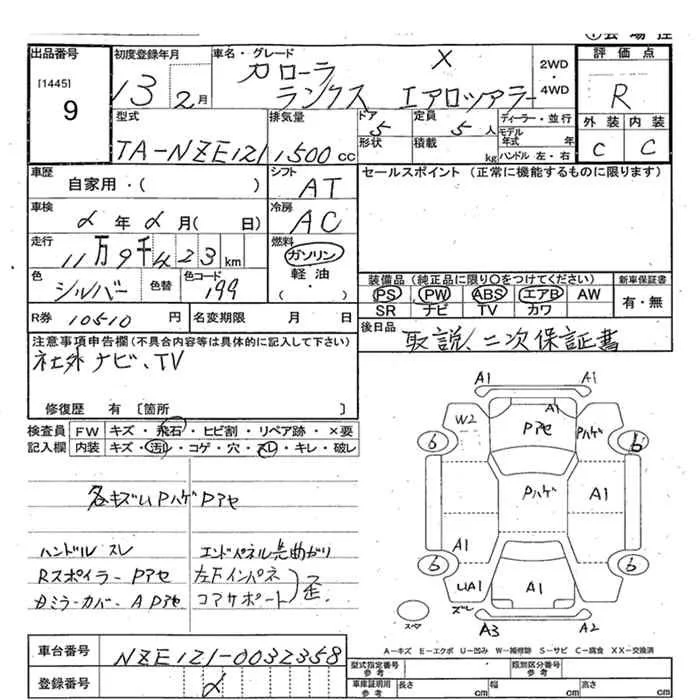 出品番号
[1445]
9
初度登録年月
13 2月
車名・グレード
カローラ X
ランクス エアロツアラー
2WD
・
4WD
評価点
R
外装 内装
C C
型式
TA-NZE121
排気量
1,500 cc
ドア
5
形状
定員
5 人
積載
kg
ディーラー・並行
モデル
年式 年
ハンドル 左・右
車歴
自家用・( )
シフト
AT
セールスポイント (正常に機能するものに限ります)
車検
年 月( 日)
冷房
AC
走行
11万9千423 km
燃料
ガソリン
軽油
( ・ )
色
シルバー
色替
色コード
199
装備品 (純正品に限り〇をつけてください)
PS PW ABS エアB AW
SR ナビ TV カワ
新車保証書
有・無
R券 10510 円
名変期限 月 日
後日品
取説、二次保証書
注意事項申告欄(不具合内容等は具体的に記入して下さい)
社外ナビ、TV
修復歴 有 [箇所 ]
検査員
記入欄
FW キズ・飛石・ヒビ割・リペア跡・×要
内装 キズ・汚レ・コゲ・穴・スレ・キレ・破レ
各キズUPハゲPアセ
ハンドル スレ
Rスポイラー Pアセ
カミラーカバー A Pアセ
エンドパネル 曲がり
左Fインパネ
コアサポート
歪
A1 A1
W2 Pアセ A1 Pハゲ
6 6
Pハゲ A1
A1
6 6
UA1 A1
スペア
A3 A2
A−キズ E−エクボ U−凹み W−補修跡 S−サビ C−腐食 XX−交換済
車台番号
NZE121-0032358
登録番号
型式指定番号
参考
類別区分番号
参考
車庫証明用
参考
長さ cm
幅 cm
高さ cm